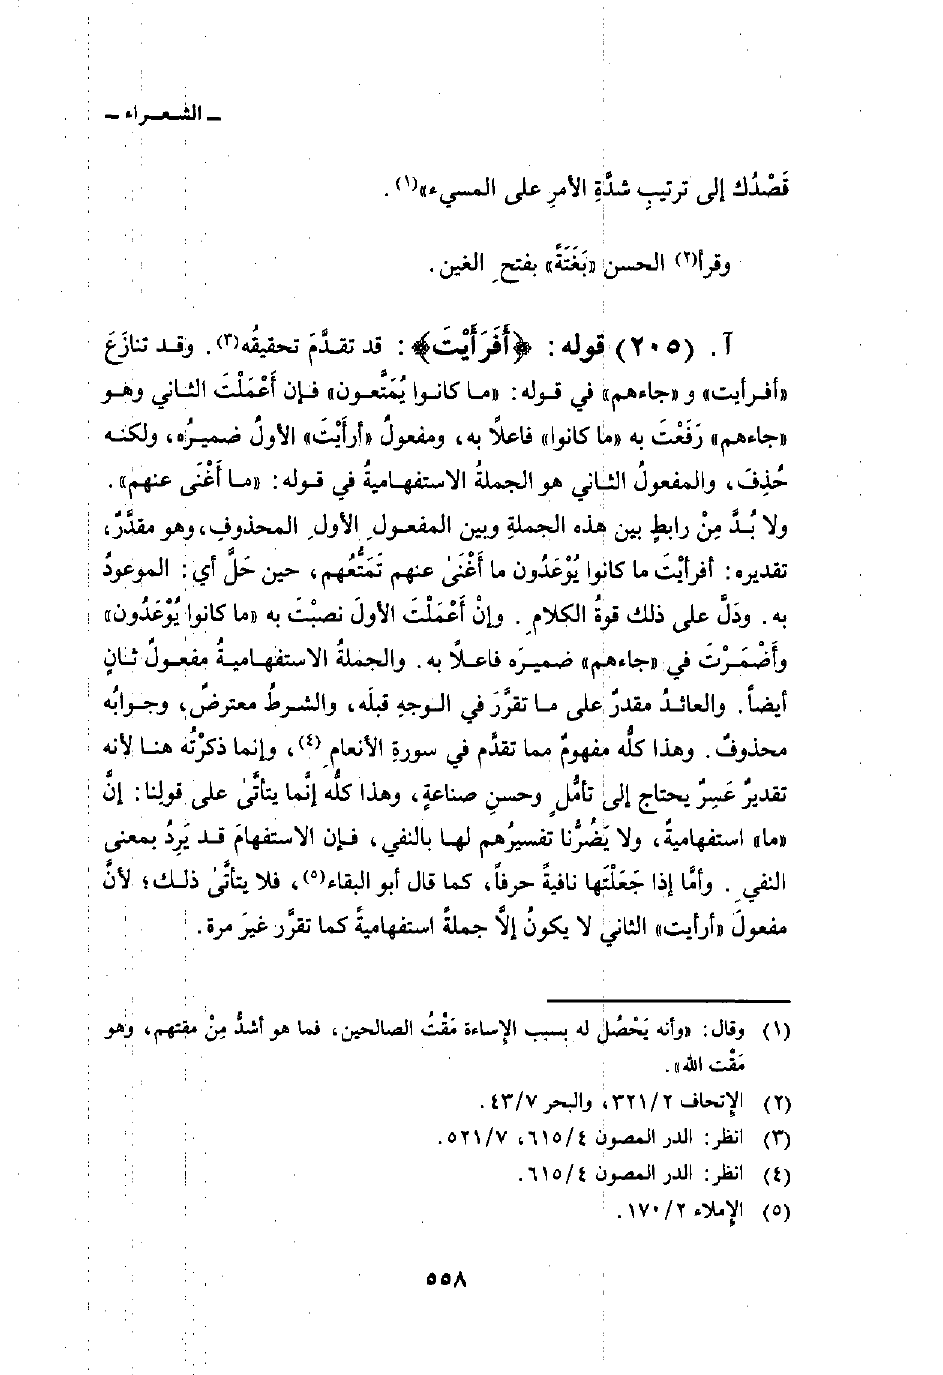 ـ الشعراء ـ
قَصْدُك إلى ترتيبِ شدَّةِ الأمرِ على المسيء»(١) .
وقرأ(٢) الحسن «بَغَتَةً» بفتح الغين .
آ . (٢٠٥) قوله : ﴿أَفَرَأَيْتَ﴾ : قد تقدَّمَ تحقيقُه(٣) . وقد تنازَعَ
«أفرأيت» و «جاءهم» في قوله : «ما كانوا يُمَتَّعون» فإن أَعْمَلْتَ الثاني وهو
«جاءهم» رَفَعْتَ به «ما كانوا» فاعلاً به ، ومفعولُ «أرأَيْتَ» الأولُ ضميرُه ، ولكنه
حُذِفَ ، والمفعولُ الثاني هو الجملةُ الاستفهاميةُ في قوله : «ما أَغْنَى عنهم» .
ولا بُدَّ مِنْ رابطٍ بين هذه الجملةِ وبين المفعولِ الأولِ المحذوفِ ، وهو مقدَّرٌ ،
تقديره : أفرأيْتَ ما كانوا يُوْعَدُون ما أَغْنىٰ عنهم تَمَتُّعُهم ، حين حَلَّ أي : الموعودُ
به . ودَلَّ على ذلك قوةُ الكلامِ . وإنْ أَعْمَلْتَ الأولَ نصبْتَ به «ما كانوا يُوْعَدُون»
وأَضْمَرْتَ في «جاءهم» ضميرَه فاعلاً به . والجملةُ الاستفهاميةُ مفعولٌ ثانٍ
أيضاً . والعائدُ مقدرٌ على ما تقرَّرَ في الوجهِ قبلَه ، والشرطُ معترضٌ ، وجوابُه
محذوفٌ . وهذا كلُّه مفهومٌ مما تقدَّم في سورةِ الأنعامِ(٤) ، وإنما ذكرْتُه هنا لأنه
تقديرٌ عَسِرٌ يحتاج إلى تأمُّلٍ وحسنِ صناعةٍ ، وهذا كلُّه إنَّما يتأتَّىٰ على قولِنا : إنَّ
«ما» استفهاميةٌ ، ولا يَضُرُّنا تفسيرُهم لها بالنفي ، فإن الاستفهامَ قد يَرِدُ بمعنى
النفيِ . وأمَّا إذا جَعَلْتَها نافيةً حرفاً ، كما قال أبو البقاء(٥) ، فلا يتأتَّىٰ ذلك ؛ لأنَّ
مفعولَ «أرأيت» الثاني لا يكونُ إلَّا جملةً استفهاميةً كما تقرَّر غيرَ مرة .
(١) وقال : «وأنه يَحْصُل له بسبب الإساءة مَقْتُ الصالحين ، فما هو أشدُّ مِنْ مقتهم ، وهو
مَقْت الله» .
(٢) الإتحاف ٣٢١/٢ ، والبحر ٤٣/٧ .
(٣) انظر : الدر المصون ٦١٥/٤ ، ٥٢١/٧ .
(٤) انظر : الدر المصون ٦١٥/٤ .
(٥) الإملاء ١٧٠/٢ .
٥٥٨